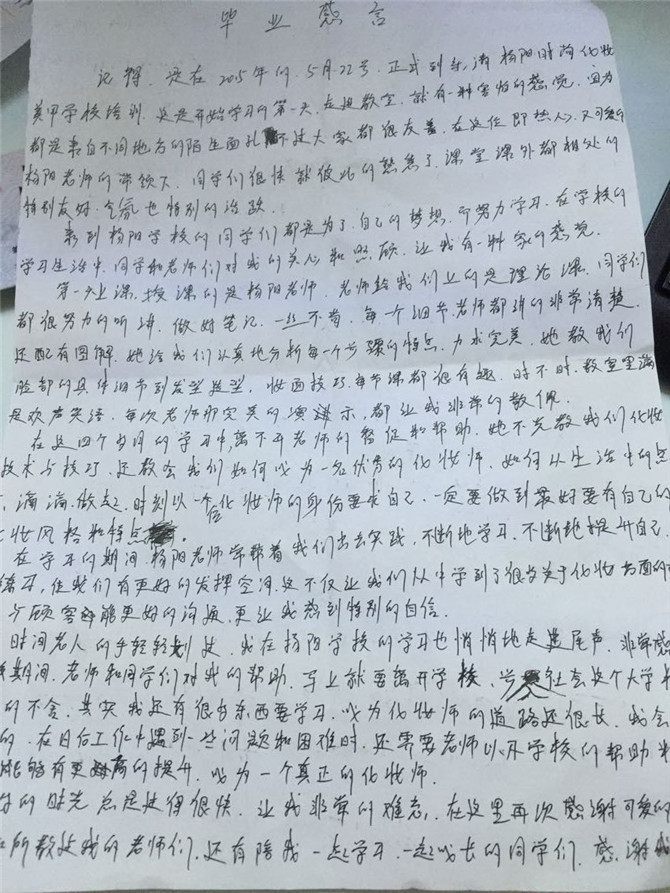 毕业感言
记得,是在2015年的5月22号.正式到 杨阳时尚化妆
美甲学校培训.这是开始学习的第一天.走进教室.就有一种害怕的感觉.因为
都是来自不同地方的陌生面孔 不过大家都很友善.在这位即热人,又可爱的
杨阳老师的带领下.同学们很快就彼此的熟悉了.课堂课外都相处的
特别友好.气氛也特别的洽跃.
来到杨阳学校的同学们都是为了.自己的梦想.而努力学习.在学校的
学习生活中.同学和老师们对我的关心和照顾.让我有一种家的感觉.
第一次上课.授课的是杨阳老师.老师给我们上的是理论课.同学们
都很努力的听讲.做好笔记.一丝不苟.每个细节老师都讲的非常清楚.
还配有图解.她给我们认真地分析每一个步骤的特点.力求完美.她教我们
脸部的具体细节到发型造型.妆面技巧.每节课都很有趣.时不时.教室里满
是欢声笑语.每次老师那完美的演示,都让我非常的敬佩.
在这四个多月的学习中,离不开老师的督促和帮助.她不光教我们化妆
技术与技巧.还教会我们如何成为一名优秀的化妆师.如何从生活中的点
滴滴.做起.时刻以一位化妆师的身份要求自己.一定要做到最好要有自己的
妆风格和特点.
在学习的期间杨阳老师常带着我们出去实践,不断地学习.不断地提升自己.
练习,使我们有更好的发挥空间.这不仅让我们从中学到了很多关于化妆方面的
与顾客能更好的沟通.更让我感到特别的自信.
时间老人的手轻轻划过.我在杨阳学校的学习也悄悄地走进尾声.非常感
期间.老师和同学们对我的帮助.马上就要离开学校.步入社会这个大学
的不舍.其实我还有很多东西要学习.成为化妆师的道路还很长.我会
的.在日后工作中遇到一些问题和困难时.还需要老师以及学校的帮助
能够有更高的提升.成为一个真正的化妆师.
的时光总是过得很快.让我非常的难忘.在这里再次感谢可爱的
所教过我的老师们.还有陪我一起学习.一起成长的同学们.感谢我